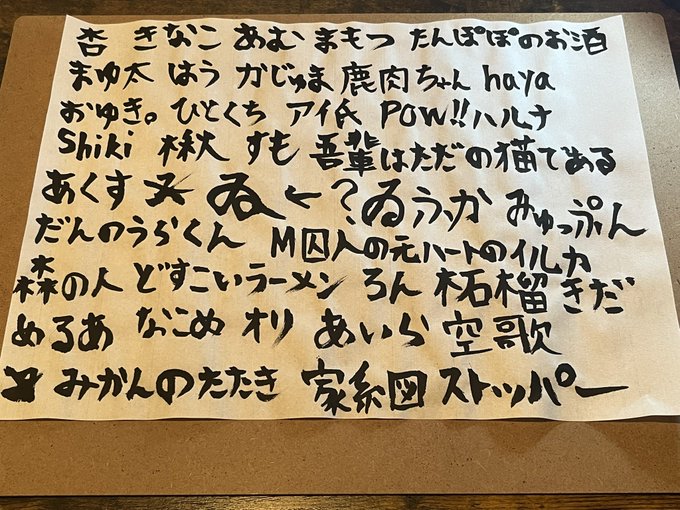 杏 きなこ あむ まもつ たんぽぽのお酒
まゆ太 はう かじゅま 鹿肉ちゃん haya
おゆき。 ひとくち アイ氏 POW!!ハルナ
Shiki 楸 すも 吾輩はただの猫である
あくす ゐ ←? ゐうか みゅっぷん
だんのうらくん M囚人の元ハートのイルカ
森の人 どすこいラーメン ろん 柘榴 きだ
めるあ なこめ オリ あいら 空歌
みかんのたたき 家系図ストッパー